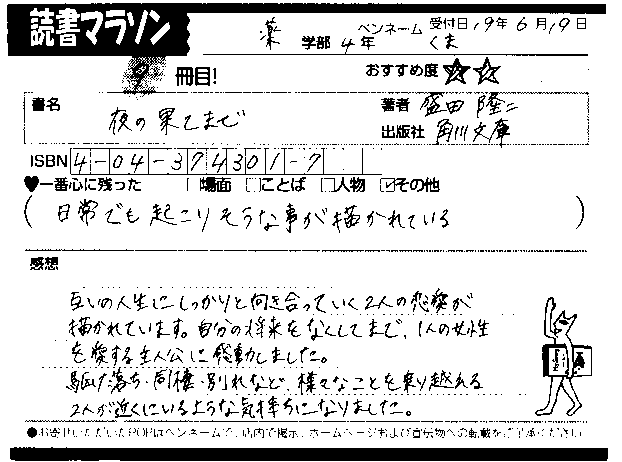 読書マラソン
薬 学部 4年 ペンネーム くま 受付日 19年 6月 19日
9 冊目! おすすめ度 ☆☆
書名 夜の果てまで
著者 盛田 隆二
出版社 角川文庫
ISBN 4-04-374301-7
♥一番心に残った □場面 □ことば □人物 ☑その他
( 日常でも起こりそうな事が描かれている )
感想
互いの人生にしっかりと向き合っていく2人の恋愛が
描かれています。自分の将来をなくしてまで、1人の女性
を愛する主人公に感動しました。
駆け落ち・同棲・別れなど、様々なことを乗り越える
2人が近くにいるような気持ちになりました。
●お寄せいただいたPOPはペンネームで、店内で掲示、ホームページおよび宣伝物への転載をご了承ください